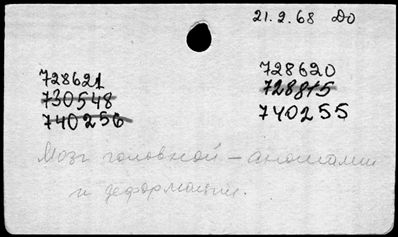 21.2.68 До
728621
730548
740256
728620
728815
740255
Мозг головной - аномалии
и деформации.